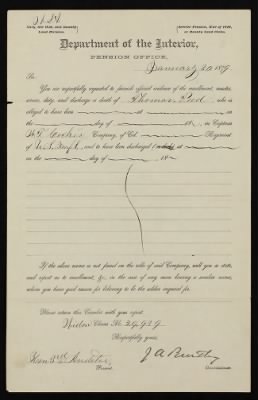 Department of the Interior,
PENSION OFFICE,
January 20 1879.
Sir:
You are respectfully requested to furnish official evidence of the enrollment, muster,
service, duty, and discharge or death of Thomas Reed, who is
alleged to have been at
on the day of 18, in Captain
Company, of Col. Regiment
of U.S. Inft, and to have been discharged
on the day of 18
If the above name is not found on the rolls of said Company, will you so state,
and report as to enrollment, &c., in the case of any man bearing a similar name,
whom you have good reason for believing to be the soldier inquired for.
Please return this Circular with your report.
Widow Claim No. 24929
Respectfully yours,
J A Bentley
Commissioner.